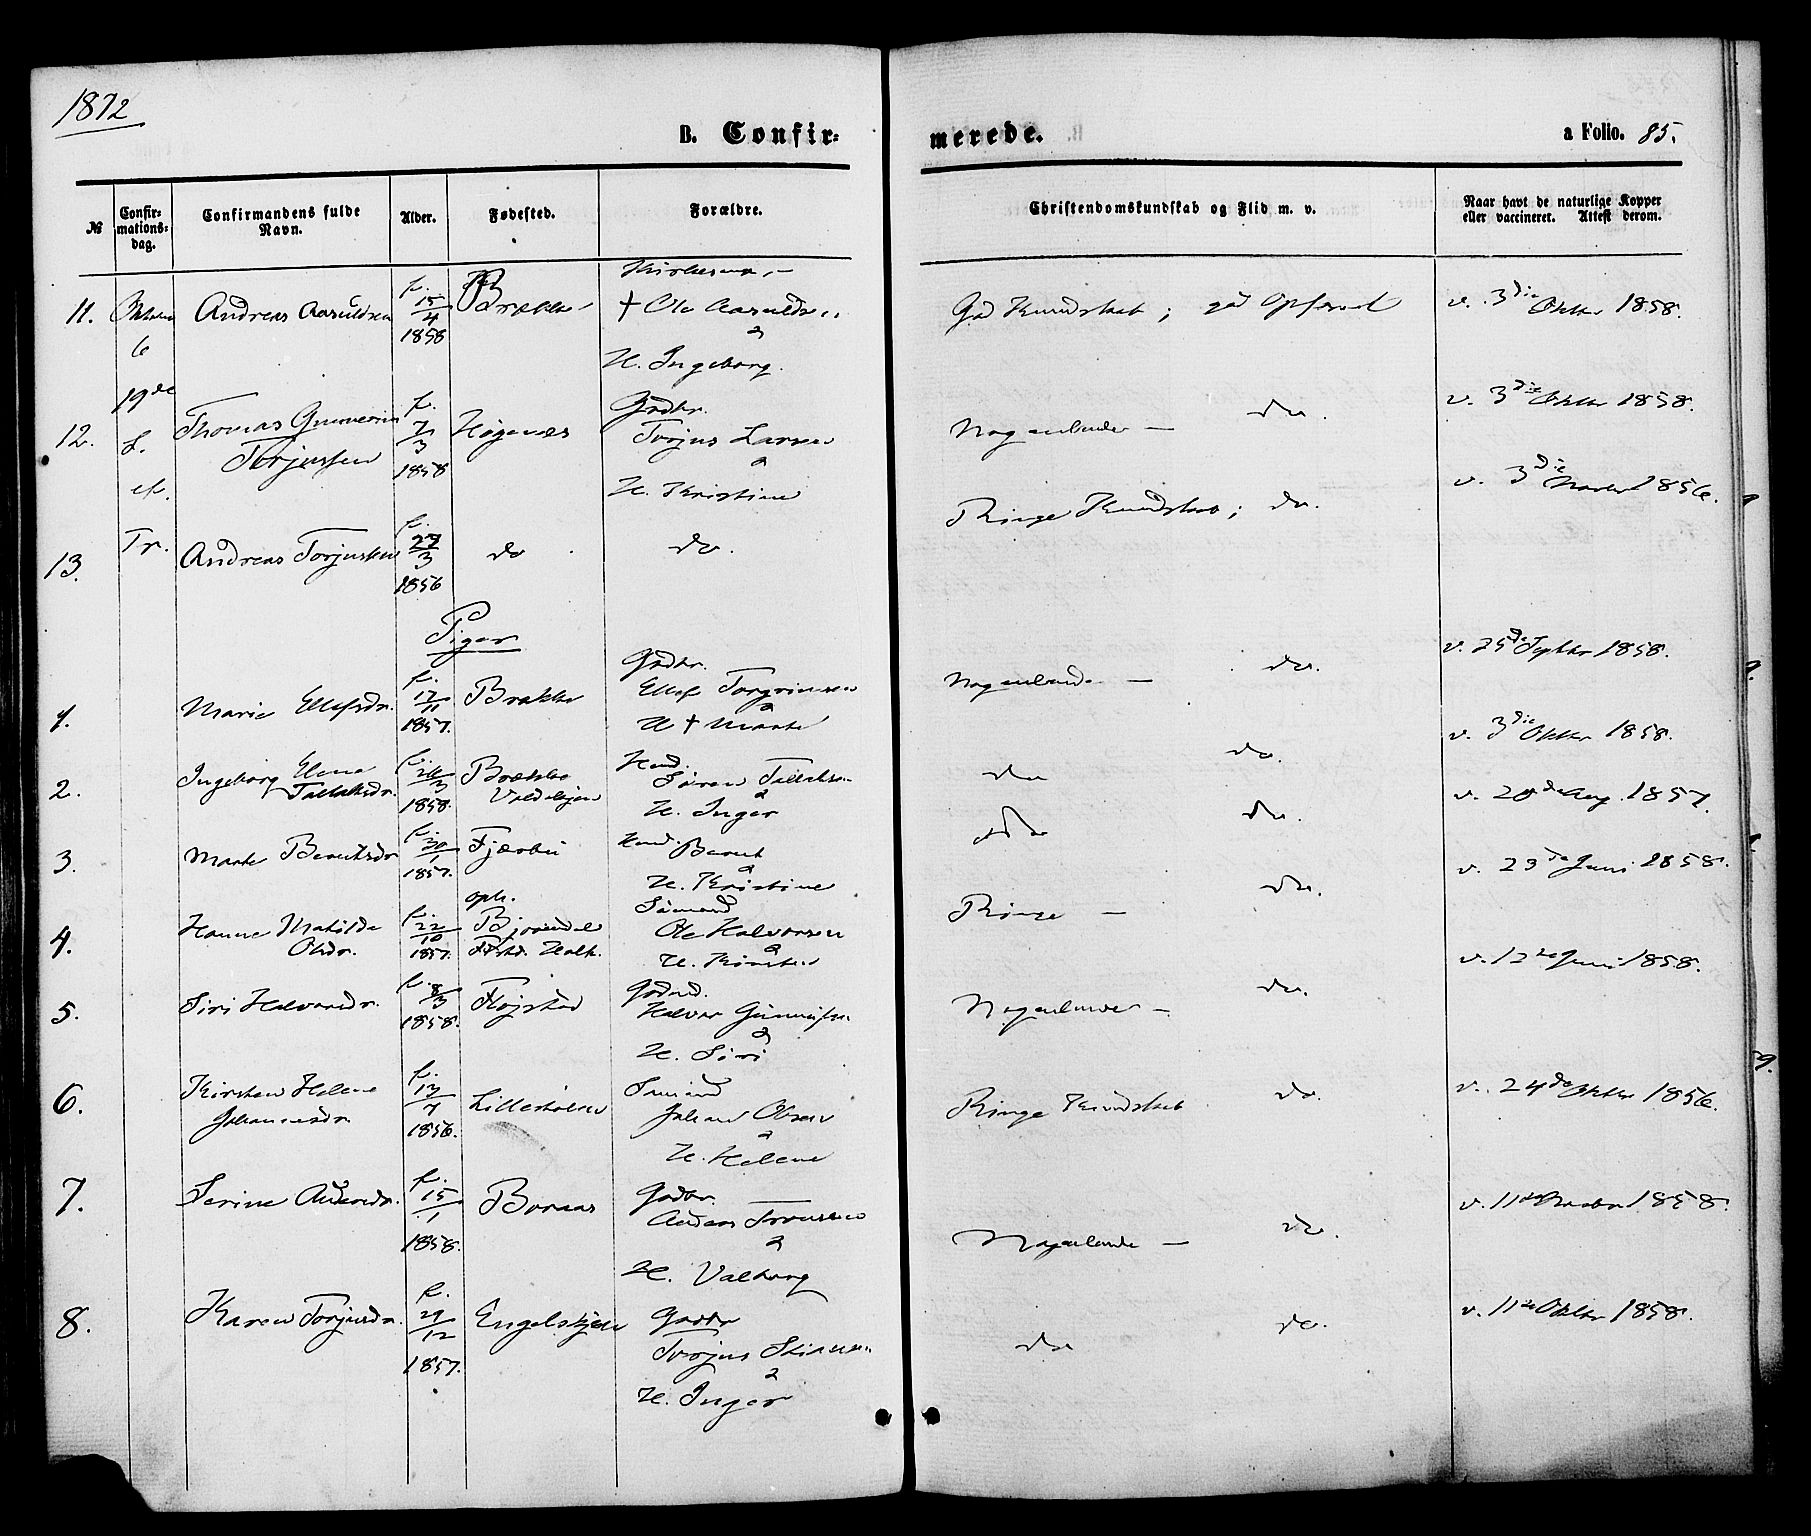 1872
B. Confir-
merede.
a Folio. 85.
№
Confir-
mations-
dag.
Confirmandens fulde
Navn.
Alder.
Fødested.
Forældre.
Christendomskundskab og Flid m. v.
Naar havt de naturlige Kopper
eller vaccineret. Attest derom.
11. Andreas Aasuldsen
f. 15/4 1858
Brække
† Ole Aasuldsen
&
H. Ingeborg.
God Kundskab; god Opførsel
v. 3die Oktbr 1858.
6
19de
12. Thomas Gunerius
Torjussen
f. 7/3 1858
Høgenæs
Grdbr.
Torjus Larsen
&
H. Kristine
Nogenlunde — do.
v. 3die Oktbr 1858.
S.
ef.
Tr.
13. Andreas Torjussen
f. 27/3 1856
do
do.
Ringe Kundskab; do.
v. 3die 1856.
Piger
1. Marie Ellefsdr.
f. 12/11 1857.
Brække
Grdbr.
Ellef Torgrimsen
&
H. † Marte
Nogenlunde — do.
v. 25de Septbr 1858.
2. Ingeborg Elene
Tallaksdr.
f. 26/3 1858.
Brække
Hmd.
Søren Tallaksen
&
H. Inger
do do.
v. 3die Oktbr 1858.
3. Marte Berntsdr
f. 30/1 1857.
Fjærbu
Hmd. Bernt
&
H. Kristine
do do.
v. 20de Aug. 1857.
4. Hanne Matilde
Olsdr.
f. 22/10 1857.
opk.
Sømand
Ole Halvorsen
&
H. Kirsten
Ringe — do.
v. 23de Juni 1858.
5. Siri Halvorsdr.
f. 8/3 1858.
Fløjstad
Halvor
&
H. Siri
Nogenlunde — do.
v. 12te Juni 1858.
6. Kirsten Helene
Johannesdr.
f. 13/7 1856.
Lilleholen
Sømand
Johan Olsen
&
H. Helene
Ringe Kundskab do.
v. 24de Oktbr 1856.
7. Serine Andersdr.
f. 15/1 1858.
Boraas
Grdbr.
Anders
&
H. Valborg
Nogenlunde — do.
v. 11te 1858.
8. Karen Torjusdr.
f. 29/12 1857.
Engelskjøn
Grdbr
Torjus
&
H. Inger
do do.
v. 11te Oktbr 1858.